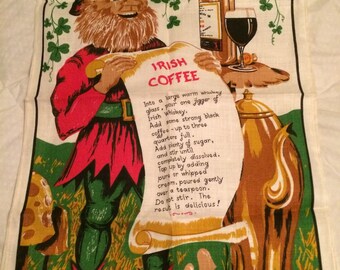 IRISH
COFFEE
Into a large warm whiskey
glass, pour one jigger of
Irish whiskey.
Add some strong black
coffee - up to three
quarters full.
Add plenty of sugar,
and stir until
completely dissolved.
Top up by adding
pouring or whipped
cream, poured gently
over a teaspoon.
Do not stir. The
result is delicious!